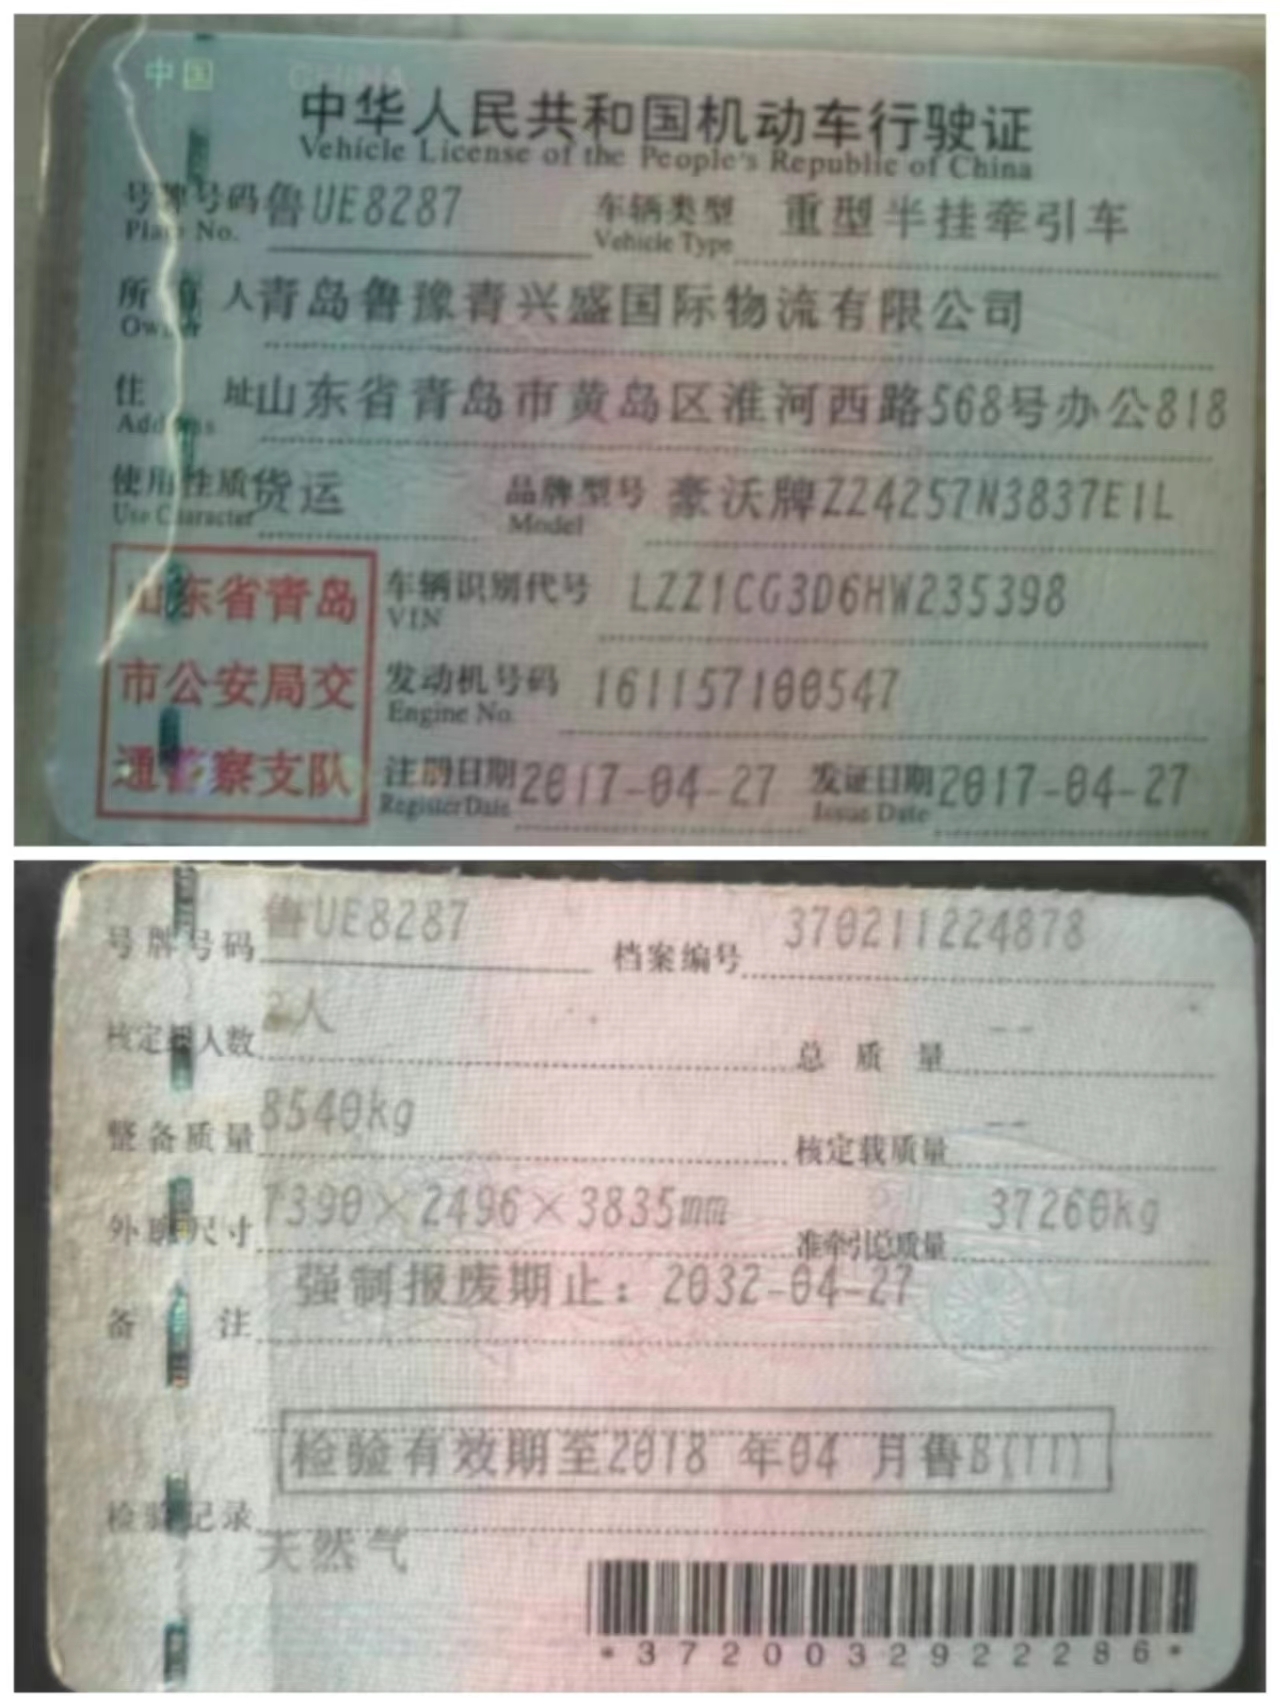 中国 CHINA
中华人民共和国机动车行驶证
Vehicle License of the People's Republic of China
号牌号码 鲁UE8287 车辆类型 重型半挂牵引车
Plate No. Vehicle Type
所有人 青岛鲁豫青兴盛国际物流有限公司
Owner
住址 山东省青岛市黄岛区淮河西路568号办公818
Address
使用性质 货运 品牌型号 豪沃牌ZZ4257N3837E1L
Use Character Model
山东省青岛
市公安局交
通警察支队
车辆识别代号 LZZ1CG3D6HW235398
VIN
发动机号码 161157100547
Engine No.
注册日期 2017-04-27 发证日期 2017-04-27
Register Date Issue Date
号牌号码 鲁UE8287 档案编号 370211224878
核定载人数 人 总质量 --
整备质量 8540kg 核定载质量 --
外廓尺寸 7390×2496×3835mm 准牵引总质量 37260kg
备注 强制报废期止：2032-04-27
检验有效期至2018 年04 月鲁B(11)
检验记录
天然气
*3720032922286*